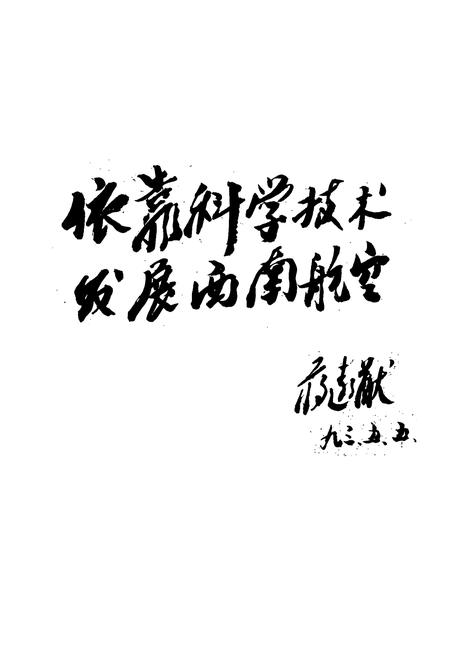 依靠科学技术
发展西南航空
蒋远猷
九三.五.五.